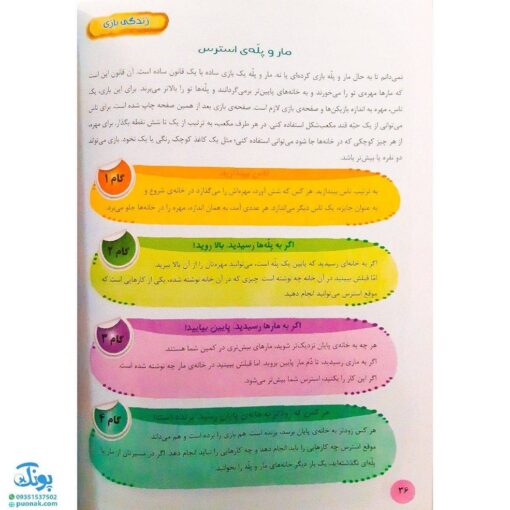 زندگی بازی
مار و پلّه‌ی استرس
نمی‌دانم تا به حال مار و پلّه بازی کرده‌ای یا نه. مار و پلّه یک بازی ساده با یک قانون ساده است. آن قانون این است
که مارها مهره‌ی تو را می‌خورند و به خانه‌های پایین‌تر برمی‌گردانند و پلّه‌ها تو را بالاتر می‌برند. برای این بازی، یک
تاس، مهره به اندازه بازیکن‌ها و صفحه‌ی بازی لازم است. صفحه‌ی بازی بعد از همین صفحه چاپ شده است. برای تاس
می‌توانی از یک حبّه قند مکعب‌شکل استفاده کنی. در هر طرف مکعب، به ترتیب از یک تا شش نقطه بگذار. برای مهره،
از هر چیز کوچکی که در خانه‌ها جا شود می‌توانی استفاده کنی؛ مثل یک کاغذ کوچک رنگی یا یک نخود. بازی می‌تواند
دو نفره یا بیش‌تر باشد.
گام ۱
تاس بیندازید.
به ترتیب تاس بیندازید. هر کس که شش آورد، مهره‌اش را می‌گذارد در خانه‌ی شروع و
به عنوان جایزه، یک تاس دیگر می‌اندازد. هر عددی آمد، به همان اندازه، مهره را در خانه‌ها جلو می‌برد.
گام ۲
اگر به پلّه‌ها رسیدید، بالا روید!
اگر به خانه‌ای رسیدید که پایین یک پلّه است، می‌توانید مهره‌تان را از آن بالا ببرید.
امّا قبلش ببینید در آن خانه چه نوشته است. چیزی که در آن خانه نوشته شده، یکی از کارهایی است که
موقع استرس می‌توانید انجام دهید.
گام ۳
اگر به مارها رسیدید، پایین بیایید!
هر چه به خانه‌ی پایان نزدیک‌تر شوید، مارهای بیش‌تری در کمین شما هستند.
اگر به ماری رسیدید، تا دُم مار پایین بروید. اما قبلش ببینید در خانه‌ی مار چه نوشته شده است.
اگر این کار را بکنید، استرس شما بیش‌تر می‌شود.
گام ۴
هر کس که زودتر به خانه‌ی پایان رسید، برنده است!
هر کس زودتر به خانه‌ی پایان برسد، برنده است. هم بازی را برده است و هم می‌داند
موقع استرس چه کارهایی را باید انجام دهد و چه کارهایی را نباید انجام دهد. اگر در مسیرتان از مار یا
پلّه‌ای نگذشته‌اید، یک بار دیگر خانه‌های مار و پلّه را بخوانید.
۳۶
پونک
09351537502
puonak.com